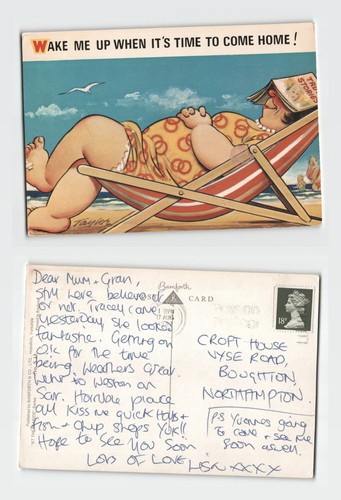 WAKE ME UP WHEN IT'S TIME TO COME HOME!
TRUE
STORIES
Taylor
Bamforth
POST CARD
18P
Dear Mum + Gran,
Still here believe it
or not. Tracey came
Yesterday she looked
fantastic. Getting on
O.K for the time
being, Weathers Great.
Went to Weston on
Sat. Horrible place
all Kiss me quick Hats +
Fish + Chip shops Yuk!!
Hope to see you Soon
LOTS OF LOVE LISA XXXX
CROFT HOUSE
VYSE ROAD,
BOUGHTON,
NORTHAMPTON.
PS Yvonnes going
to come + see me
Soon aswell.